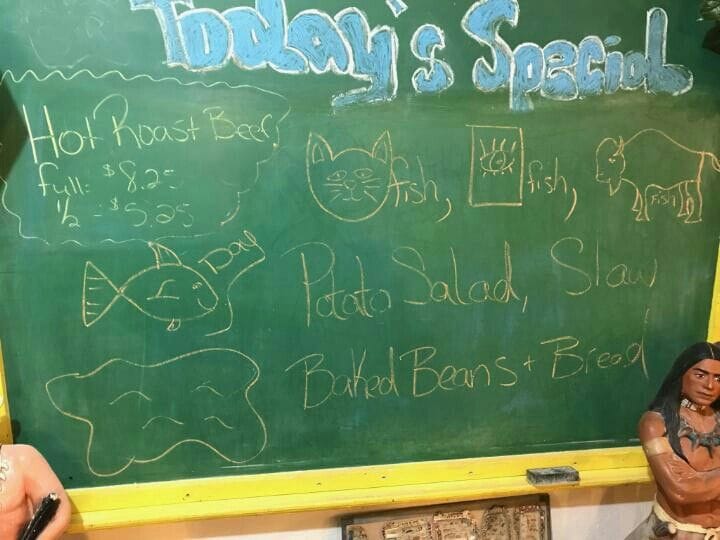 Today's Special
Hot Roast Beef
full: $8.25
1/2 - $5.25
fish, fish,
Fish
Day
Potato Salad, Slaw
Baked Beans + Bread